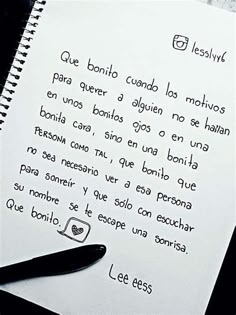 lesslyr6
Que bonito cuando los motivos
para querer a alguien no se hallan
en unos bonitos ojos o en una
bonita cara, sino en una bonita
PERSONA COMO TAL, que bonito que
no sea necesario ver a esa persona
para sonreir y que sólo con escuchar
su nombre se te escape una sonrisa.
Que bonito.
Lee eess